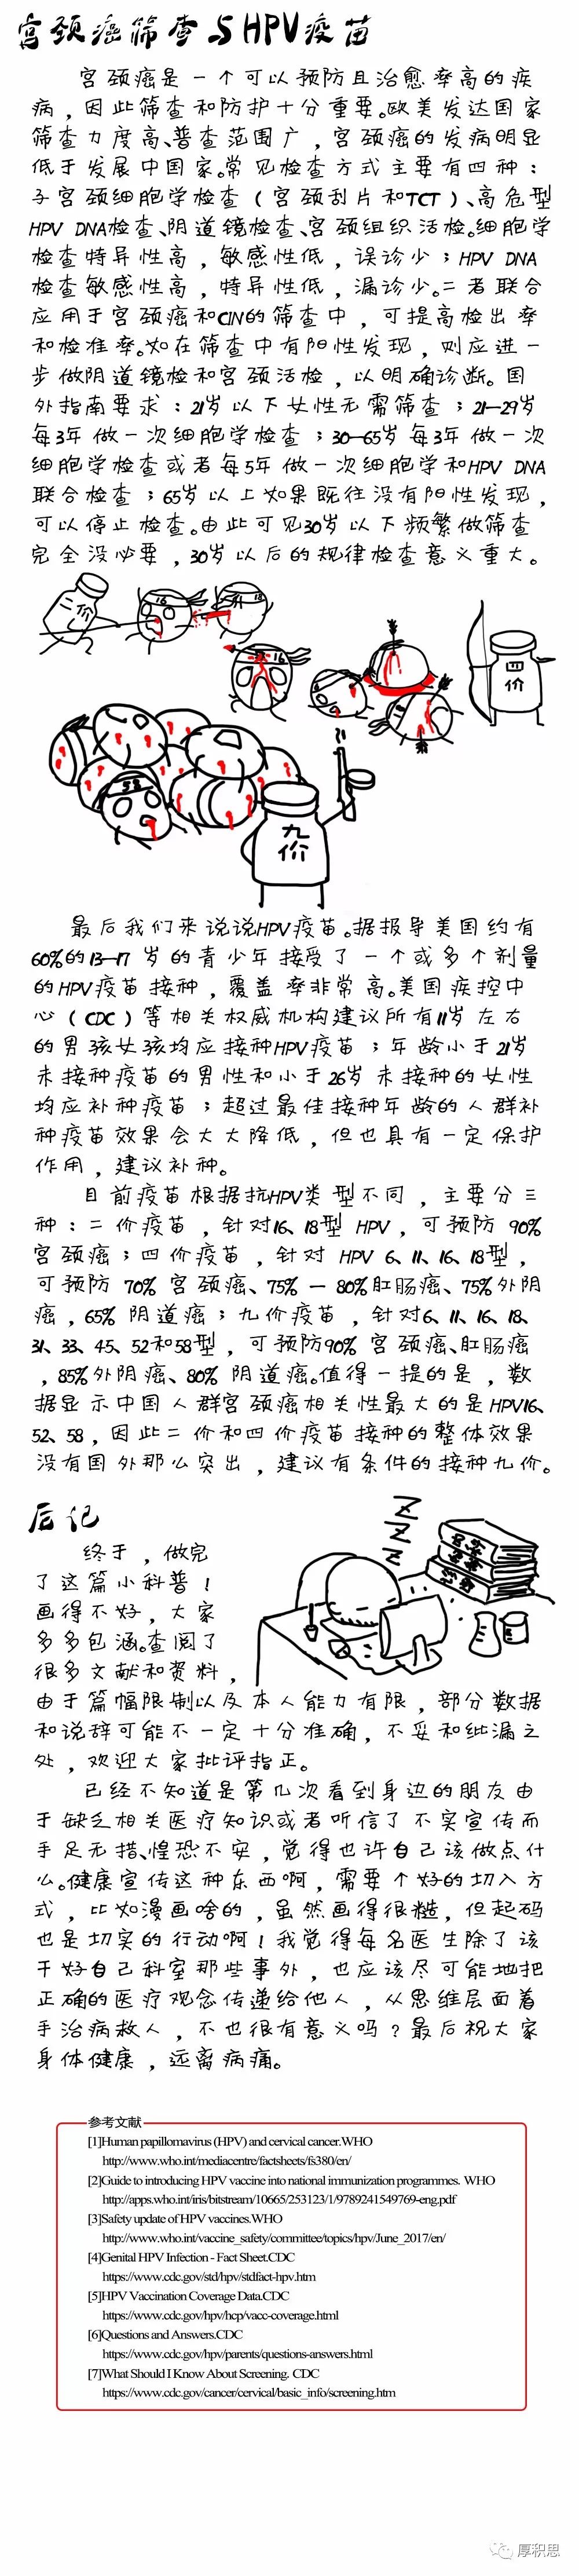 宫颈癌筛查与HPV疫苗
宫颈癌是一个可以预防且治愈率高的疾
病，因此筛查和防护十分重要。欧美发达国家
筛查力度高、普查范围广，宫颈癌的发病明显
低于发展中国家。常见检查方式主要有四种：
子宫颈细胞学检查（宫颈刮片和TCT）、高危型
HPV DNA检查、阴道镜检查、宫颈组织活检。细胞学
检查特异性高，敏感性低，误诊少；HPV DNA
检查敏感性高，特异性低，漏诊少。二者联合
应用于宫颈癌和CIN的筛查中，可提高检出率
和检准率。如在筛查中有阳性发现，则应进一
步做阴道镜检和宫颈活检，以明确诊断。国
外指南要求：21岁以下女性无需筛查；21—29岁
每3年做一次细胞学检查；30—65岁每3年做一次
细胞学检查或者每5年做一次细胞学和HPV DNA
联合检查；65岁以上如果既往没有阳性发现，
可以停止检查。由此可见30岁以下频繁做筛查
完全没必要，30岁以后的规律检查意义重大。
二价
16
18
16
6
四价
58
九价
最后我们来说说HPV疫苗。据报导美国约有
60%的13—17岁的青少年接受了一个或多个剂量
的HPV疫苗接种，覆盖率非常高。美国疾控中
心（CDC）等相关权威机构建议所有11岁左右
的男孩女孩均应接种HPV疫苗；年龄小于21岁
未接种疫苗的男性和小于26岁未接种的女性
均应补种疫苗；超过最佳接种年龄的人群补
种疫苗效果会大大降低，但也具有一定保护
作用，建议补种。
目前疫苗根据抗HPV类型不同，主要分三
种：二价疫苗，针对16、18型HPV，可预防90%
宫颈癌；四价疫苗，针对HPV 6、11、16、18型，
可预防70%宫颈癌、75%—80%肛肠癌、75%外阴
癌，65%阴道癌；九价疫苗，针对6、11、16、18、
31、33、45、52和58型，可预防90%宫颈癌、肛肠癌
，85%外阴癌、80%阴道癌。值得一提的是，数
据显示中国人群宫颈癌相关性最大的是HPV16、
52、58，因此二价和四价疫苗接种的整体效果
没有国外那么突出，建议有条件的接种九价。
后记
Z
Z
Z
终于，做完
了这篇小科普！
画得不好，大家
多多包涵。查阅了
很多文献和资料，
由于篇幅限制以及本人能力有限，部分数据
和说辞可能不一定十分准确，不妥和纰漏之
处，欢迎大家批评指正。
已经不知道是第几次看到身边的朋友由
于缺乏相关医疗知识或者听信了不实宣传而
手足无措、惶恐不安，觉得也许自己该做点什
么。健康宣传这种东西啊，需要个好的切入方
式，比如漫画啥的，虽然画得很糙，但起码
也是切实的行动啊！我觉得每名医生除了该
干好自己科室那些事外，也应该尽可能地把
正确的医疗观念传递给他人，从思维层面着
手治病救人，不也很有意义吗？最后祝大家
身体健康，远离病痛。
参考文献
[1]Human papillomavirus (HPV) and cervical cancer.WHO
http://www.who.int/mediacentre/factsheets/fs380/en/
[2]Guide to introducing HPV vaccine into national immunization programmes. WHO
http://apps.who.int/iris/bitstream/10665/253123/1/9789241549769-eng.pdf
[3]Safety update of HPV vaccines.WHO
http://www.who.int/vaccine_safety/committee/topics/hpv/June_2017/en/
[4]Genital HPV Infection - Fact Sheet.CDC
https://www.cdc.gov/std/hpv/stdfact-hpv.htm
[5]HPV Vaccination Coverage Data.CDC
https://www.cdc.gov/hpv/hcp/vacc-coverage.html
[6]Questions and Answers.CDC
https://www.cdc.gov/hpv/parents/questions-answers.html
[7]What Should I Know About Screening. CDC
https://www.cdc.gov/cancer/cervical/basic_info/screening.htm
厚积思